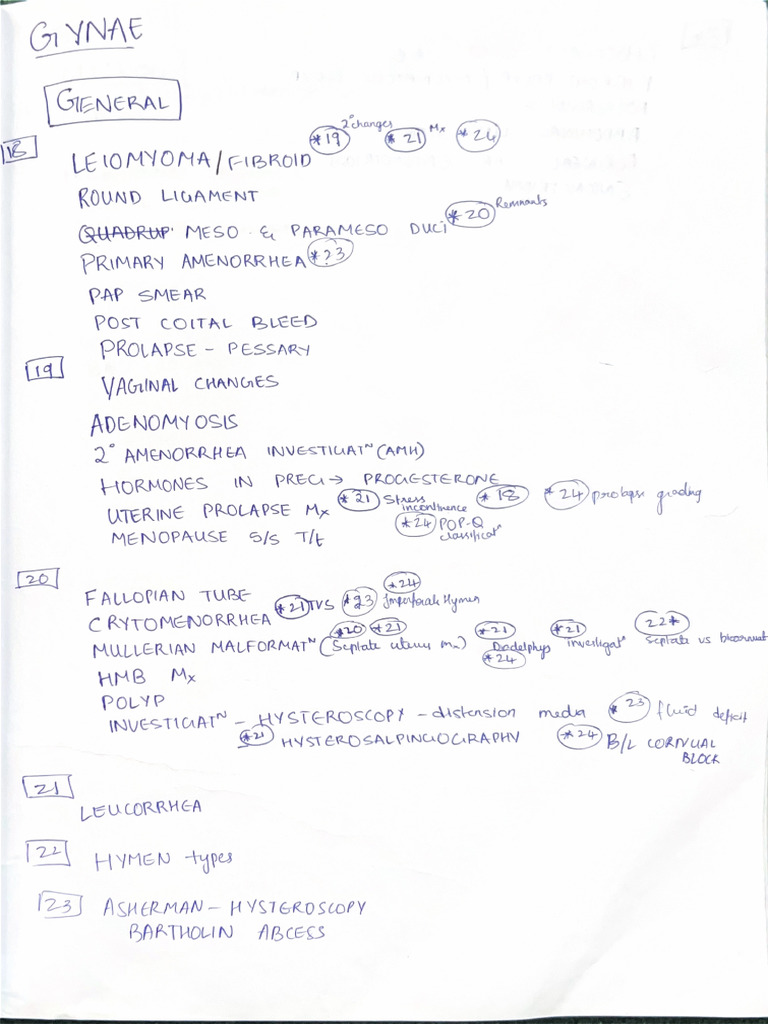 GYNAE
GENERAL
18
LEIOMYOMA/FIBROID *19 2° changes *21 Mx *24
ROUND LIGAMENT
QUADRUP. MESO & PARAMESO DUCT *20 Remnants
PRIMARY AMENORRHEA *23
PAP SMEAR
POST COITAL BLEED
PROLAPSE - PESSARY
19
VAGINAL CHANGES
ADENOMYOSIS
2° AMENORRHEA INVESTIGATN (AMH)
HORMONES IN PREG → PROGESTERONE
UTERINE PROLAPSE Mx *21 Stress incontinence *18 *24 prolapse grading
MENOPAUSE S/S T/t *24 POP-Q classificatn
20
FALLOPIAN TUBE
CRYTOMENORRHEA *21 TVS *23 *24 Imperforate Hymen
MULLERIAN MALFORMATN (Septate uterus mx) *20 *21 *21 Didelphys *24 *21 investigatn 22* Septate vs bicornuat
HMB Mx
POLYP
INVESTIGATN - HYSTEROSCOPY - distension media *23 fluid deficit
*21 HYSTEROSALPINGIOGRAPHY *24 B/L CORNUAL BLOCK
21
LEUCORRHEA
22
HYMEN types
23
ASHERMAN - HYSTEROSCOPY
BARTHOLIN ABCESS